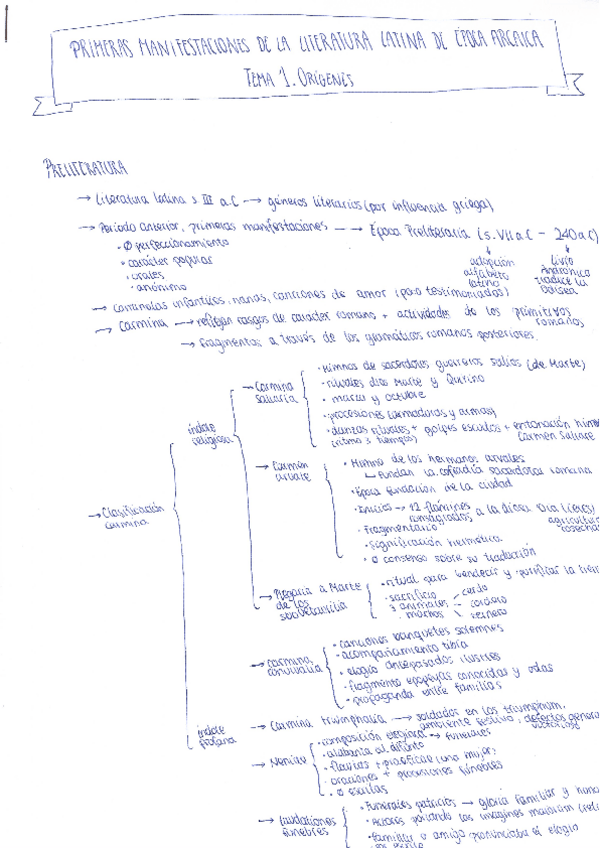 PRIMERAS MANIFESTACIONES DE LA LITERATURA LATINA DE ÉPOCA ARCAICA
TEMA 1. ORÍGENES
PRELITERATURA
→ Literatura latina s III a.C → géneros literarios (por influencia griega)
→ Período anterior, primeras manifestaciones → Época Preliteraria (s. VII a.C - 240 a.C)
· Ø perfeccionamiento
· carácter popular
· orales
· anónimo
adopción alfabeto latino
Livio Andrónico traduce la Odisea
→ cantinelas infantiles, nanas, canciones de amor (poco testimoniadas)
→ Carmina → reflejan rasgos de carácter romano + actividades de los primitivos romanos
→ Fragmentos a través de los gramáticos romanos posteriores.
→ Clasificación carmina
índole religiosa
→ Carmina Saliaria
· Himnos de sacerdotes guerreros salios (de Marte)
· rituales dios Marte y Quirino
· marzo y octubre
· procesiones (armaduras y armas)
· danzas rituales + golpes escudos + entonación himno
(ritmo 3 tiempos) Carmen Saliare
→ Carmen arvale
· Himno de los hermanos arvales
Fundan la cofradía sacerdotal romana
· Época fundación de la ciudad
· 12 flámines consagrados a la diosa Dia (Ceres)
agricultura cosechas
· Fragmentario
· significación hermética
· Ø consenso sobre su traducción
→ Plegaria a Marte de los suovetaurilia
· ritual para bendecir y purificar la
· sacrificio 3 animales machos
cerdo
cordero
ternero
índole profana
→ carmina convivalia
· canciones banquetes solemnes
· acompañamiento tibia
· elogio antepasados ilustres
· fragmento epopeyas conocidas y odas
· propaganda entre familias
→ Carmina triumphalia → soldados en los triumphum,
ambiente festivo, defectos general victorioso
→ Neniae
· composición elegíaca → funerales
· alabanza al difunto
· flautas + praeficae (una mujer)
· oraciones + procesiones fúnebres
· Ø escritas
→ Laudationes fúnebres
· Funerales patricios → gloria familiar y
· Actores portando las imagines maiorum
· familiar o amigo pronunciaba el elogio